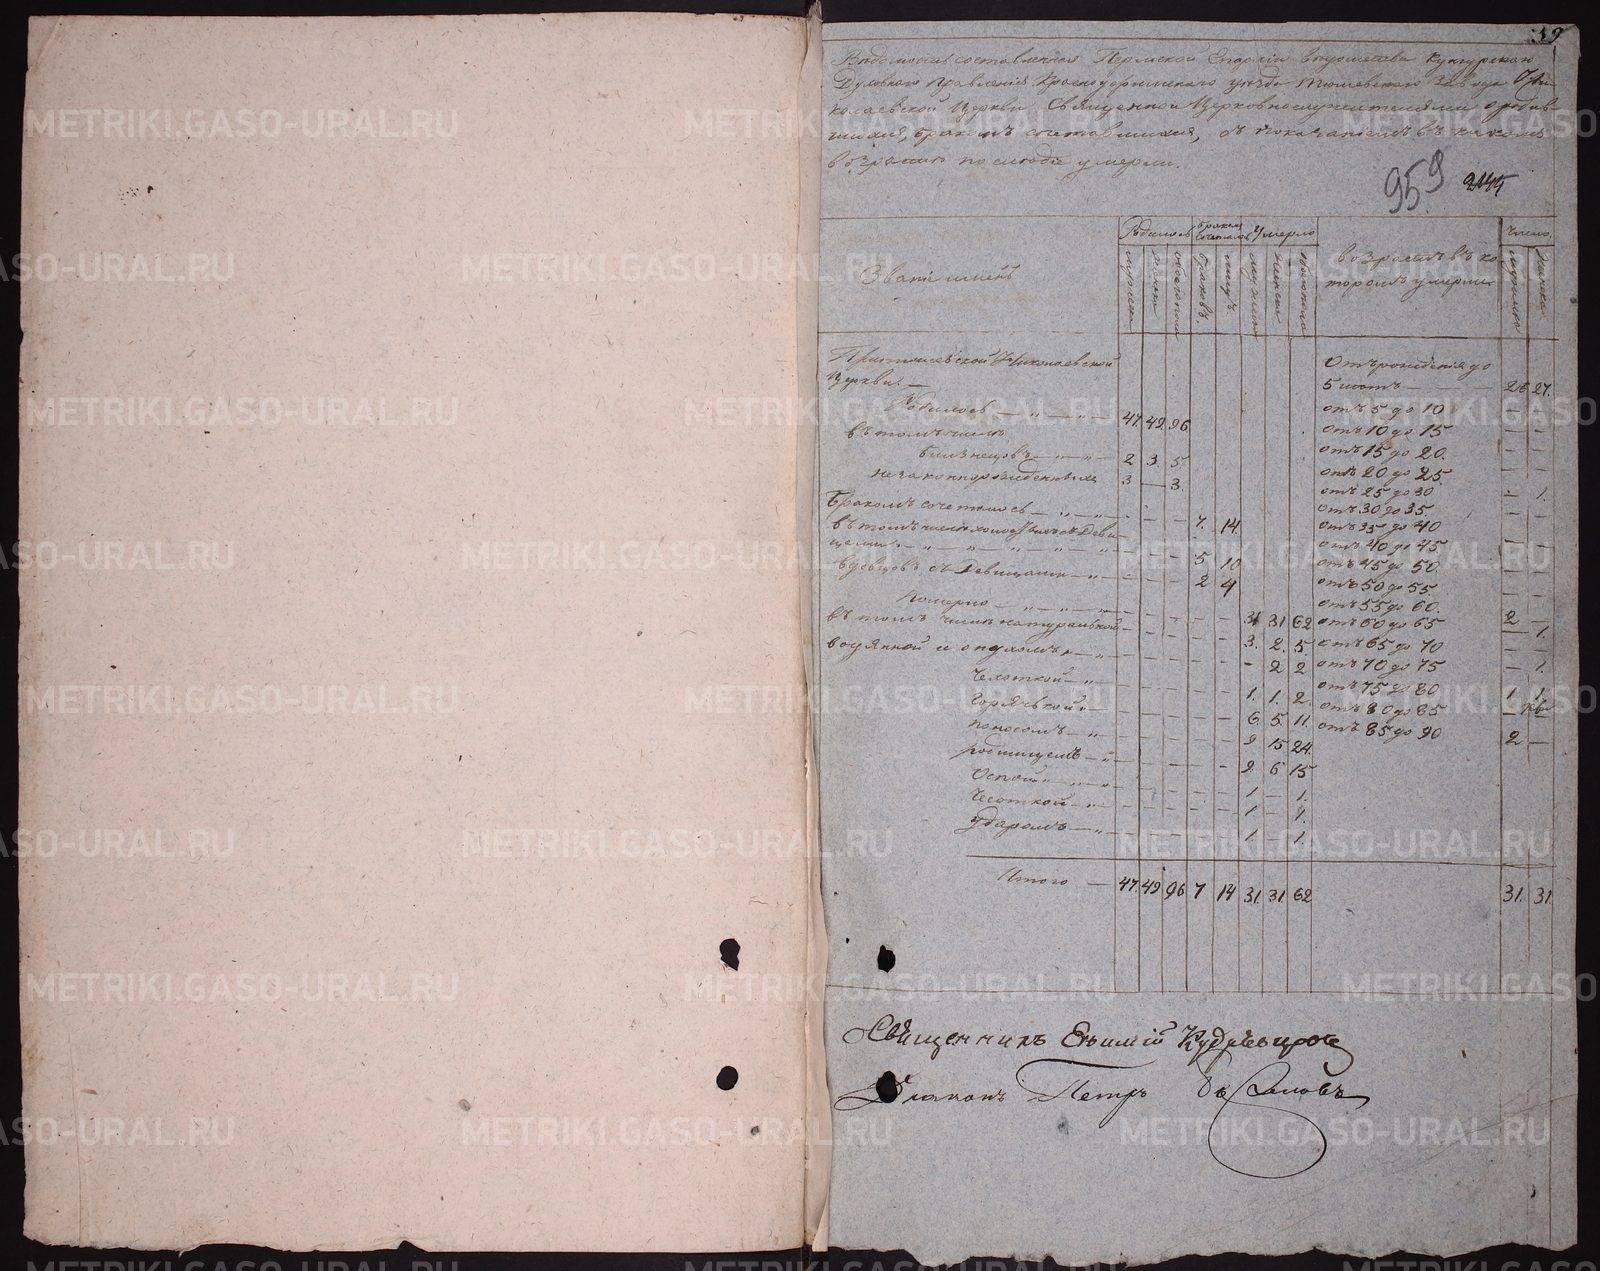 59
Ведомость составленная Пермской Епархии ведомства Кунгурского
Духовнаго Правления Красноуфимскаго уезда Тюшевскаго Завода Ни-
колаевской Церкви Священно и Церковнослужителями о родив-
шихся, браком сочетавшихся, съ показаниемъ въ какомъ
возрасте по смерти умерли.
959 2145
Звание именъ
Родилось
бракомъ сочеталось
Умерло
возрастъ въ ко-
торомъ умерли
Число
мужска женска обоегополa
браковъ лицъ
мужска женска обоегопола
мужска женска
При Тюшевской Николаевской
Церкви
Родилось 47 49 96
въ томъ числе
близнецовъ 2 3 5
незаконнорожденныхъ 3 — 3
Бракомъ сочеталось 7 14
въ томъ числе холостыхъ съ Деви-
цами 5 10
вдовцовъ съ Девицами 2 4
Померло 31 31 62
въ томъ числе натуральной 3 2 5
водянкой и опухолью — 2 2
Чахоткой 1 1 2
Горячкой 6 5 11
поносомъ 9 15 24
родимцемъ 9 6 15
Оспой 1 — 1
Чесоткой 1 — 1
ударомъ 1 — 1
Итого 47 49 96 7 14 31 31 62
Отъ рождения до
5 летъ 26 27
отъ 5 до 10 — —
отъ 10 до 15 — —
отъ 15 до 20 — —
отъ 20 до 25 — —
отъ 25 до 30 — 1
отъ 30 до 35 — —
отъ 35 до 40 — —
отъ 40 до 45 — —
отъ 45 до 50 — —
отъ 50 до 55 — —
отъ 55 до 60
отъ 60 до 65 2 —
отъ 65 до 70 — 1
отъ 70 до 75 — 1
отъ 75 до 80
отъ 80 до 85 1 1
отъ 85 до 90 2 —
31 31
Священникъ Евфимий Кудрявцовъ
Диаконъ Петръ
METRIKI.GASO-URAL.RU